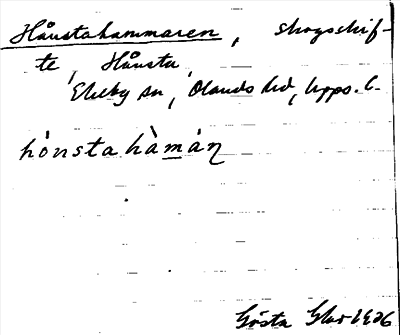 Hånstahammaren, skogsskif-
te, Hånsta,
Ekeby sn, Olands hd, Upps. l.
hònstahàmàn
Gösta 1926